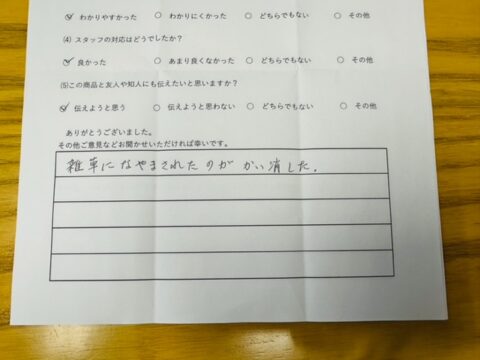 わかりやすかった ○ わかりにくかった ○ どちらでもない ○ その他
(4) スタッフの対応はどうでしたか?
良かった ○ あまり良くなかった ○ どちらでもない ○ その他
(5)この商品と友人や知人にも伝えたいと思いますか?
伝えようと思う ○ 伝えようと思わない ○ どちらでもない ○ その他
ありがとうございました。
その他ご意見などお聞かせいただければ幸いです。
雑草になやまされたのが かい消した.